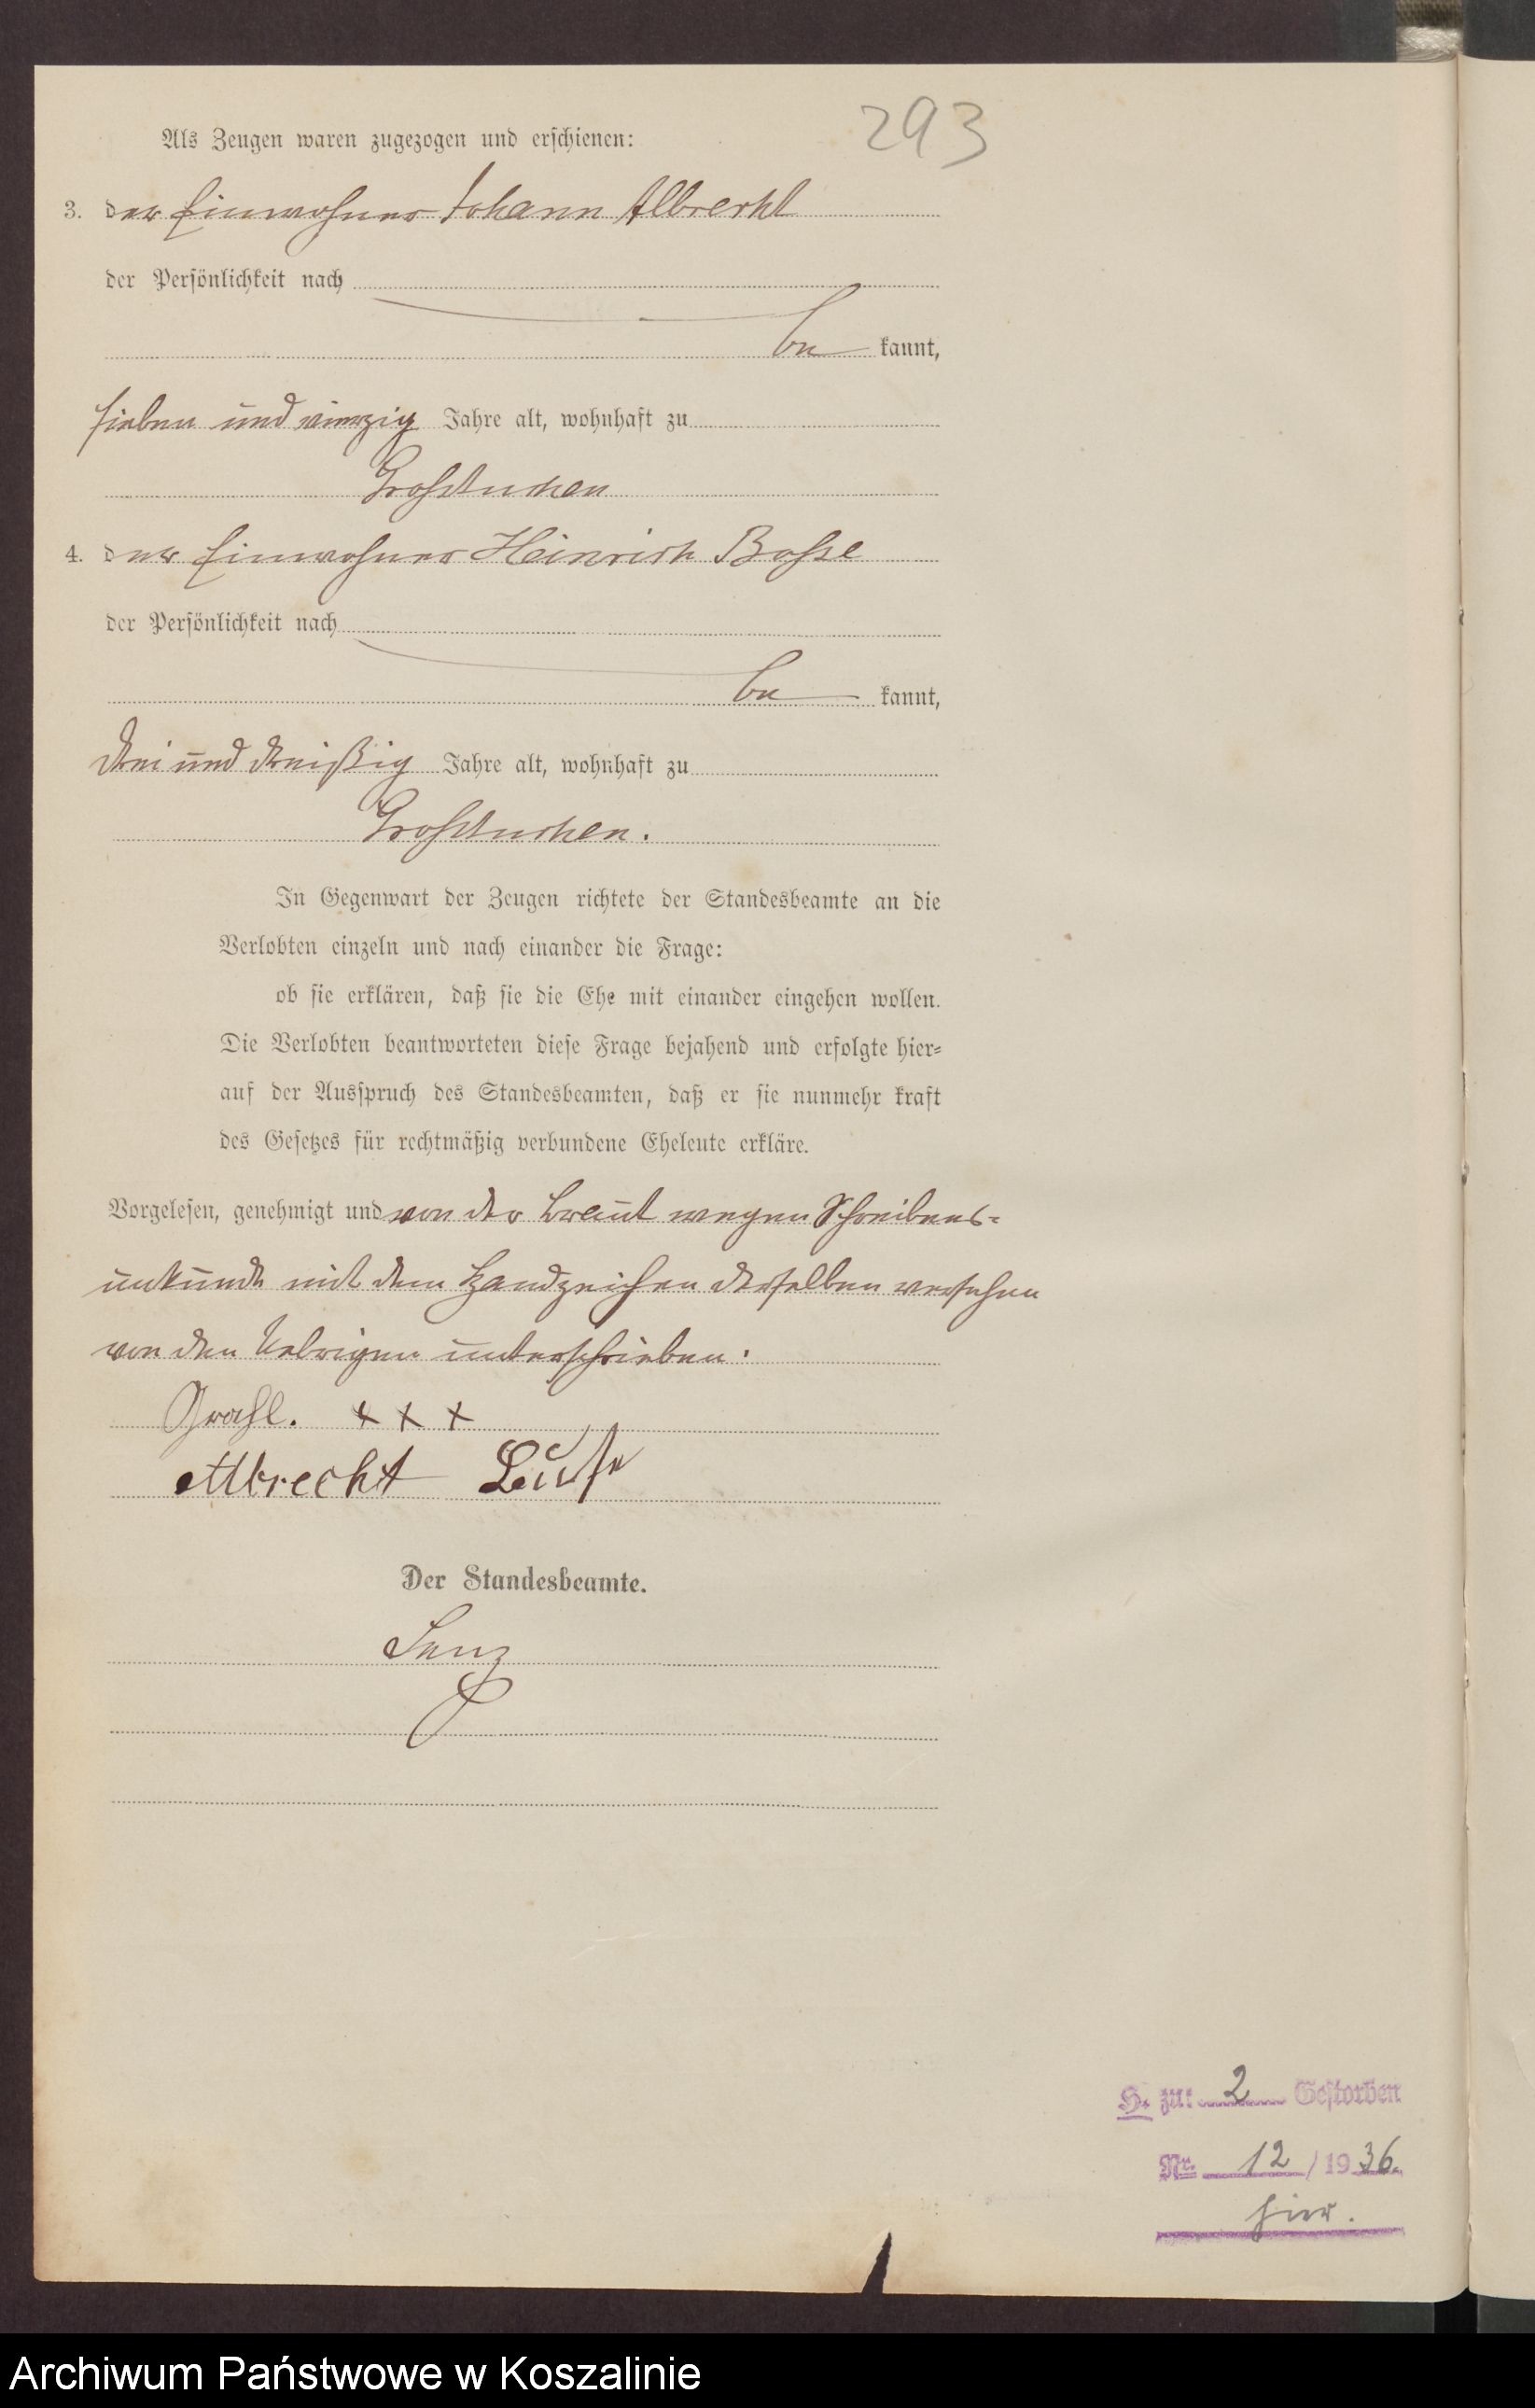 293
Als Zeugen waren zugezogen und erschienen:
3. der Einwohner Johann Albrecht
der Persönlichkeit nach
be kannt,
sieben und vierzig Jahre alt, wohnhaft zu
Großtuchen
4. der Einwohner Heinrich Bosse
der Persönlichkeit nach
be kannt,
drei und dreißig Jahre alt, wohnhaft zu
Großtuchen.
In Gegenwart der Zeugen richtete der Standesbeamte an die
Verlobten einzeln und nach einander die Frage:
ob sie erklären, daß sie die Ehe mit einander eingehen wollen.
Die Verlobten beantworteten diese Frage bejahend und erfolgte hier=
auf der Ausspruch des Standesbeamten, daß er sie nunmehr kraft
des Gesetzes für rechtmäßig verbundene Eheleute erkläre.
Vorgelesen, genehmigt und von der Braut wegen Schreibens=
unkunde mit dem Handzeichen derselben versehen
von den Uebrigen unterschrieben.
+ + +
Albrecht
Der Standesbeamte.
Lenz
H. zu: 2 Gestorben
Nr. 12 / 1936.
hier.
Archiwum Państwowe w Koszalinie